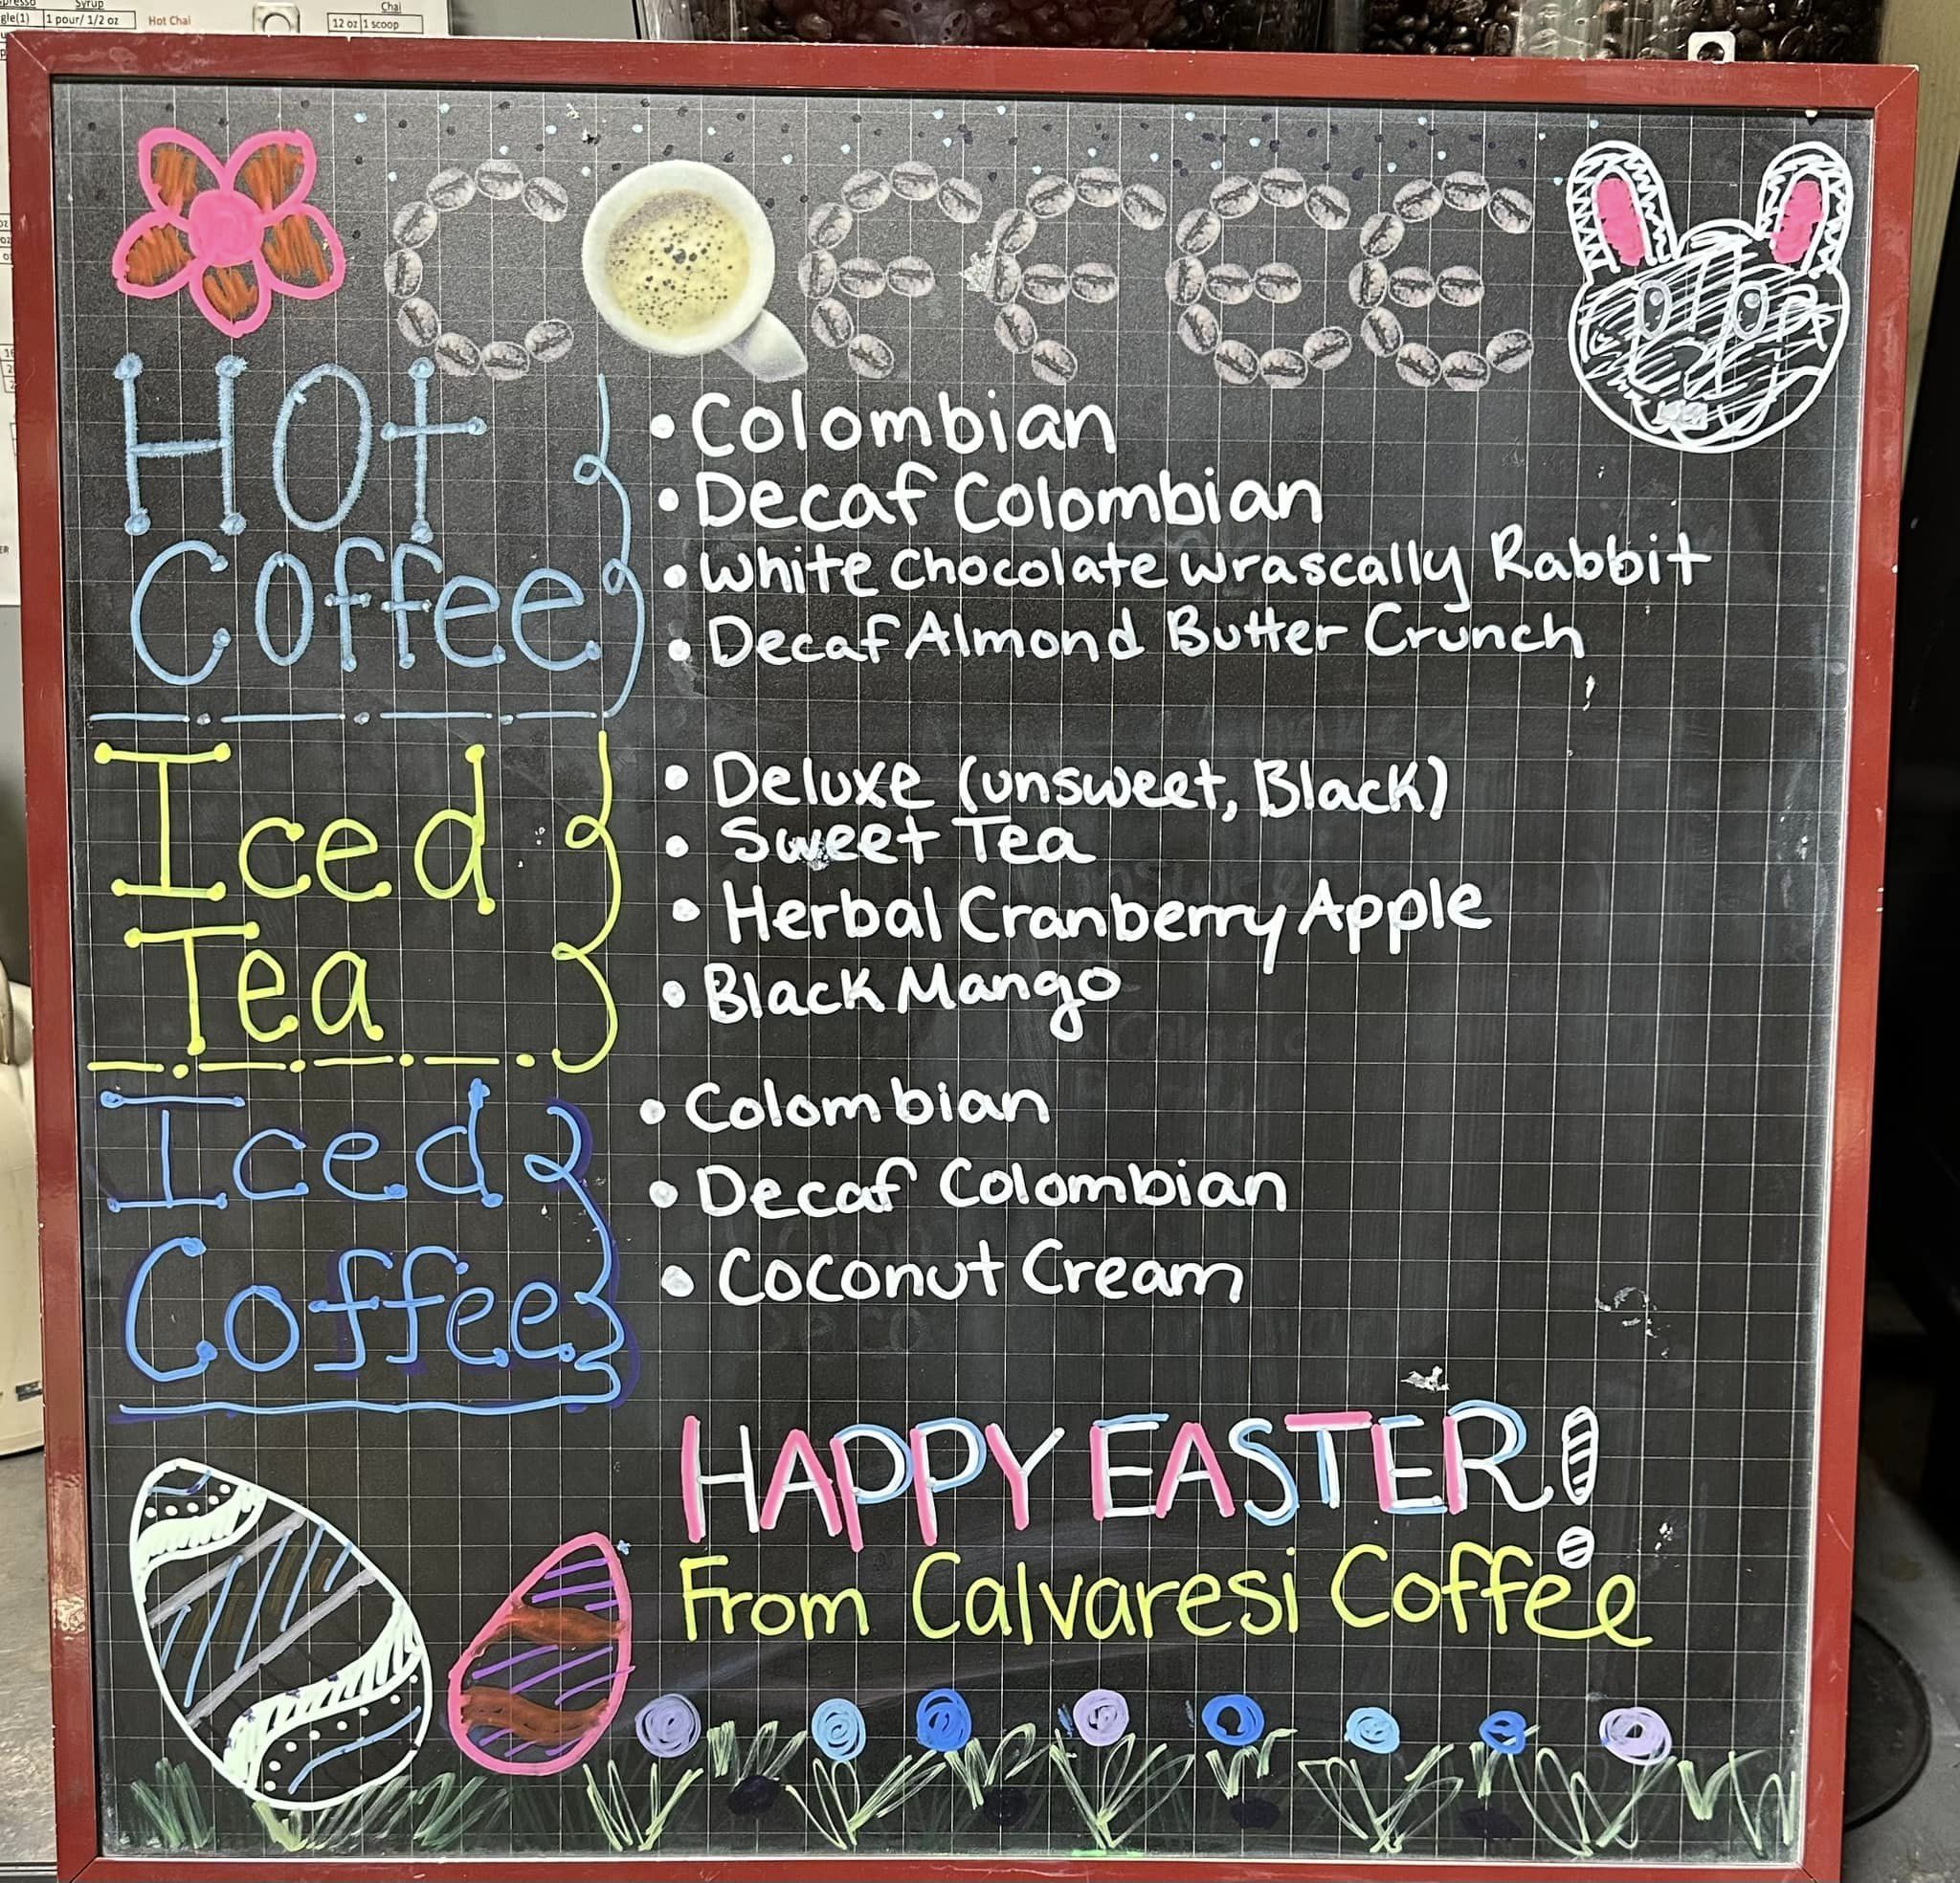 Syrup
1 pour/ 1/2 oz
Hot Chai
Chai
12 oz 1 scoop
COFFEE
Hot
Coffee
• Colombian
• Decaf Colombian
• White Chocolate Wrascally Rabbit
• Decaf Almond Butter Crunch
Iced
Tea
• Deluxe (unsweet, Black)
• Sweet Tea
• Herbal Cranberry Apple
• Black Mango
Iced
Coffee
• Colombian
• Decaf Colombian
• Coconut Cream
HAPPY EASTER!
From Calvaresi Coffee